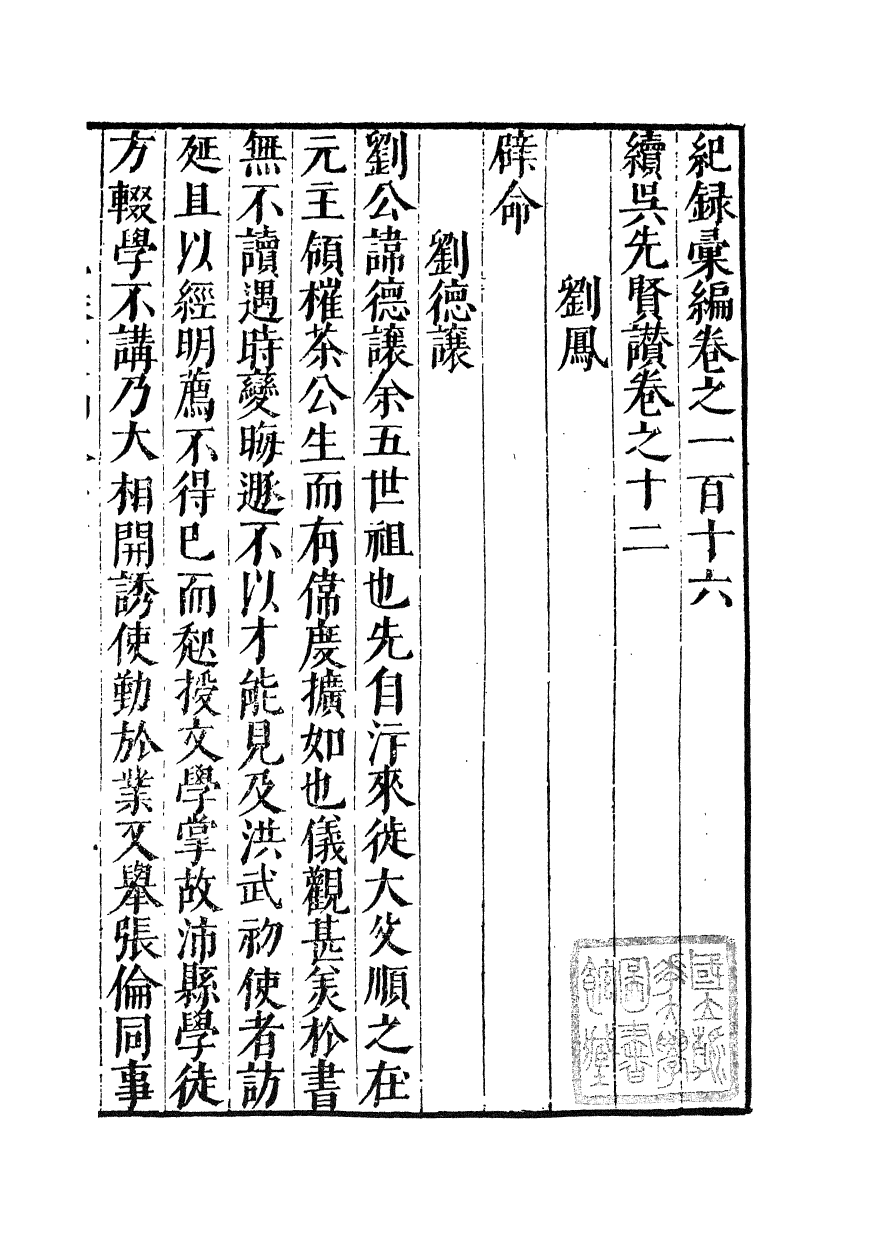 紀録彙編卷之一百十六
續吳先賢讚卷之十二
劉鳳
辟命
劉德讓
劉公諱德讓余五世祖也先自汴來徙大父順之在
元主領榷茶公生而有偉度擴如也儀觀甚美於書
無不讀遇時變晦遯不以才能見及洪武初使者訪
延且以經明薦不得已而起授文學掌故沛縣學徒
方輟學不講乃大相開誘使勤於業又舉張倫同事
國立浙
江大學
圖書
館藏